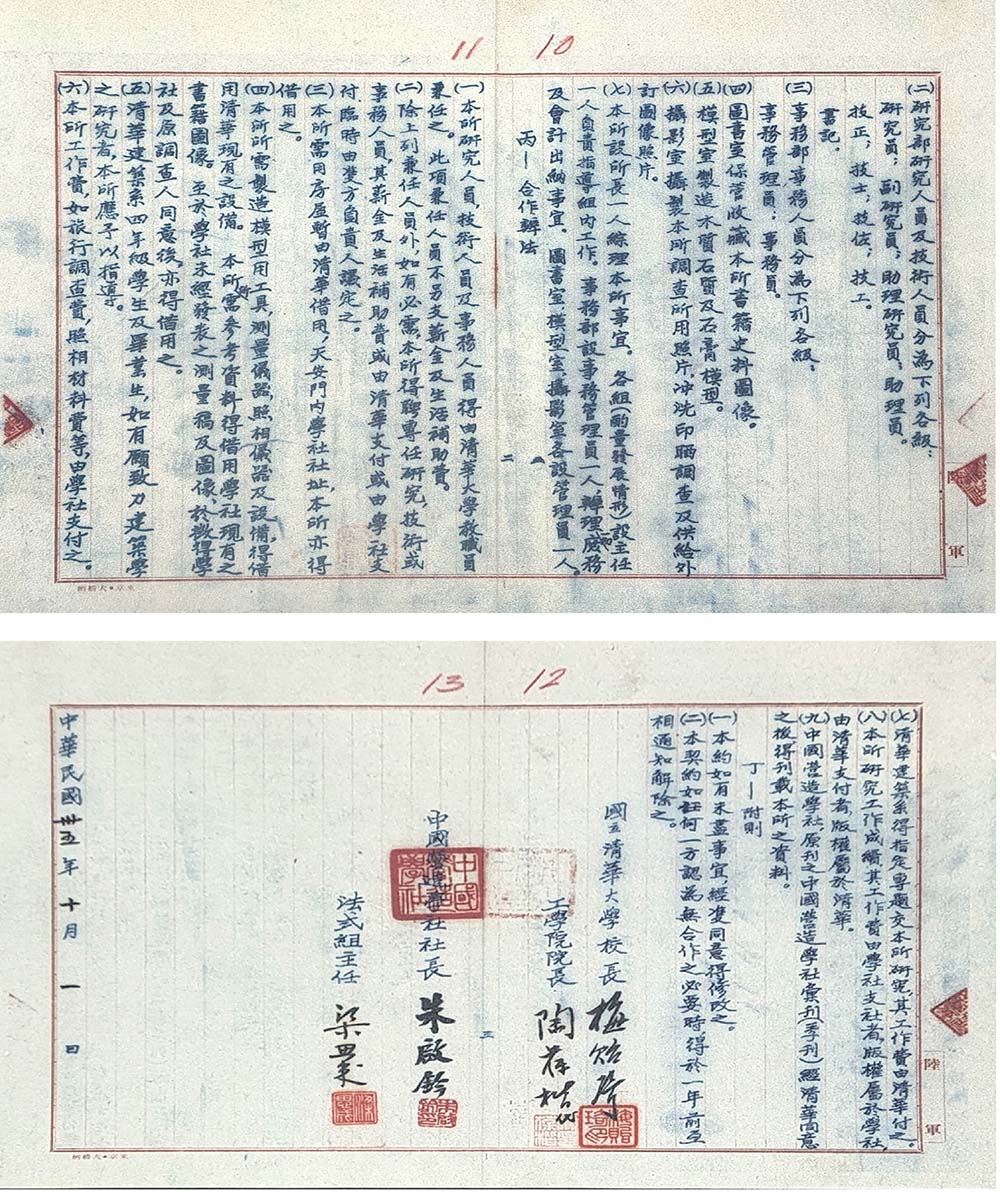 11 10
(二)研究部研究人員及技術人員分為下列各級:
研究員;副研究員;助理研究員;助理員。
技正;技士;技佐;技工。
書記.
(三)事務部事務人員分為下列各級:
事務管理員;事務員。
(四)圖書室保管收藏本所書籍史料圖像。
(五)模型室製造木質石質及石膏模型。
(六)攝影室攝製本所調查所用照片,沖洗印晒調查及供給外
訂圖像照片。
(七)本所設所長一人綜理本所事宜。各組(酌量發展情形)設主任
一人負責指導組內工作。事務部設事務管理員一人,辦理庶務
及會計出納事宜。圖書室,模型室,攝影室各設管理員一人。
丙—合作辦法
二
(一)本所研究人員,技術人員及事務人員得由清華大學教職員
兼任之。此項兼任人員不另支薪金及生活補助費。
(二)除上列兼任人員外,如有必需,本所得聘專任研究,技術或
事務人員,其薪金及生活補助費或由清華支付或由學社支
付,臨時由雙方負責人議定之。
(三)本所需用房屋暫由清華借用,天安門內學社社址,本所亦得
借用之。
(四)本所所需製造模型用工具,測量儀器,照相儀器及設備,得借
用清華現有之設備。本所所需參考資料得借用學社現有之
書籍圖像。至於學社未經發表之測量稿及圖像,於徵得學
社及原調查人同意後,亦得借用之。
(五)清華建築系四年級學生及畢業生,如有願致力建築學
之研究者,本所應予以指導。
(六)本所工作費,如旅行調查費,照相材料費等,由學社支付之。
軍
13 12
(七)清華建築系得指定專題交本所研究,其工作費由清華付之。
(八)本所研究工作成績其工作費由學社支社者,版權屬於學社,
由清華支付者,版權屬於清華。
(九)中國營造學社原刊之中國營造學社彙刊(季刊)經清華同意
之後得刊載本所之資料。
丁—附則
(一)本約如有未盡事宜,經雙同意得修改之。
(二)本契約如任何一方認為無合作之必要時得於一年前互
相通知解除之。
國立清華大學校長 梅貽琦
工學院院長 陶葆楷代
三
中國營造學社社長 朱啟鈐
法式組主任 梁思成
中華民國卅五年十月一日
陸
軍